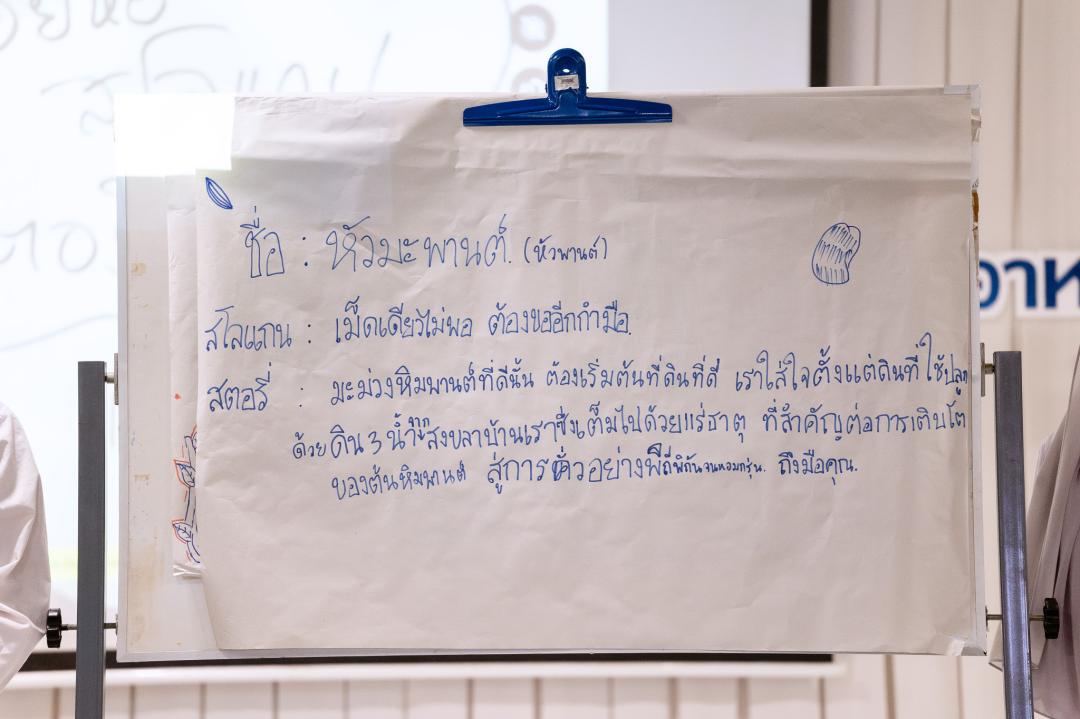 สโลแกน
ชื่อ : หัวมะพานต์. (หัวพานต์)
อาห
สโลแกน : เม็ดเดียวไม่พอ ต้องขออีกกำมือ.
สตอรี่ : มะม่วงหิมพานต์ที่ดีนั้น ต้องเริ่มต้นที่ดินที่ดี เราใส่ใจตั้งแต่ดินที่ใช้ปลูก
ด้วยดิน 3 น้ำ จาก สงขลาบ้านเราซึ่งเต็มไปด้วยแร่ธาตุ ที่สำคัญต่อการเติบโต
ของต้นหิมพานต์ สู่การคั่วอย่างพิถีพิถันจนหอมกรุ่น. ถึงมือคุณ.